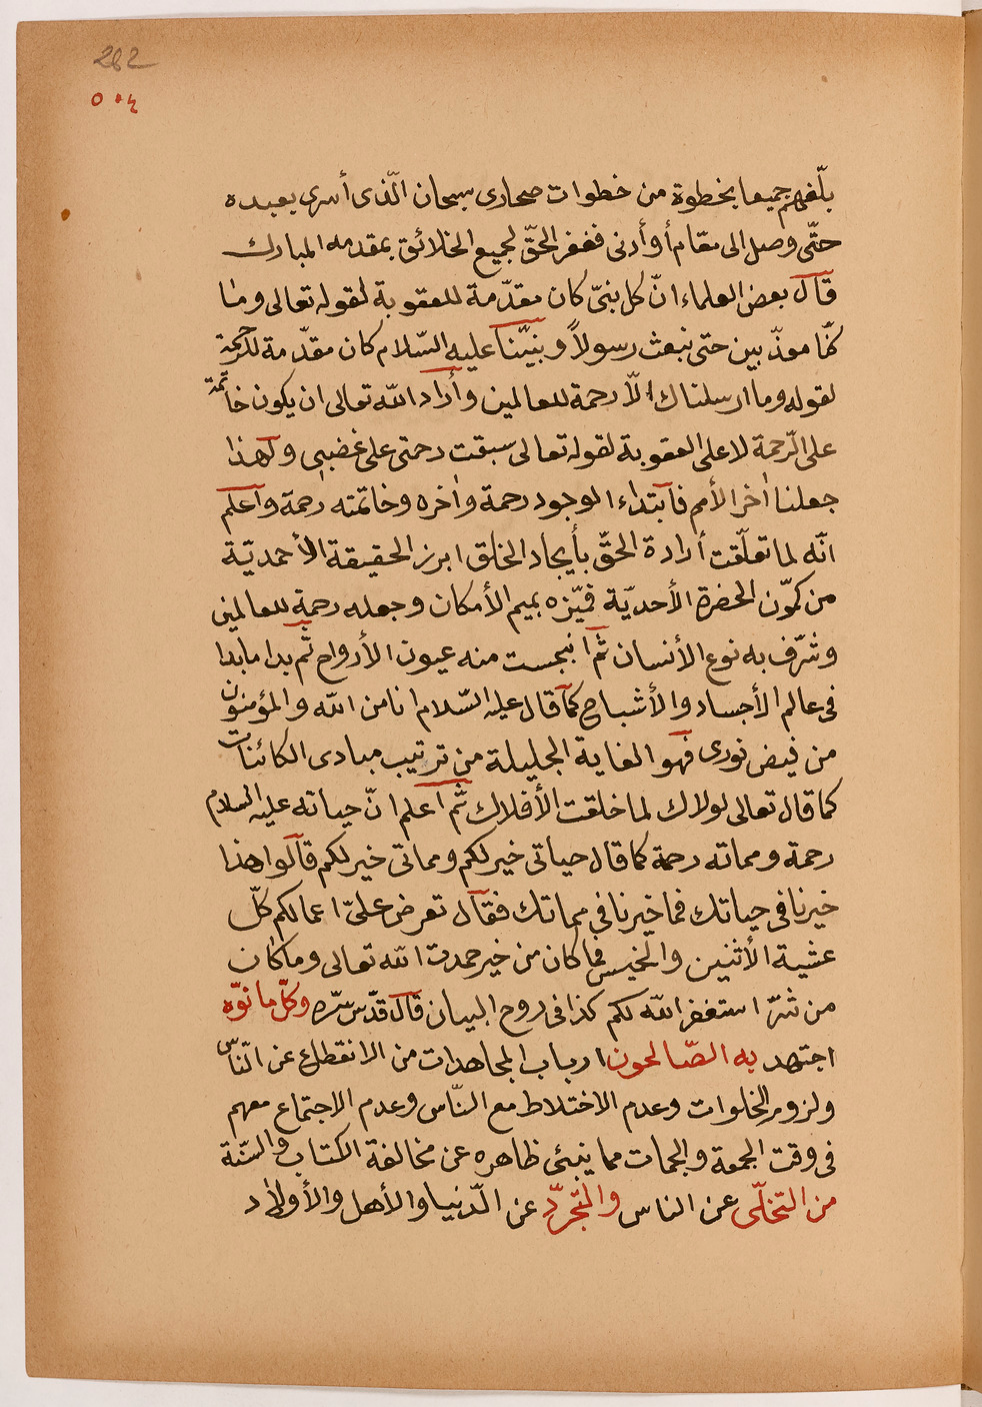 262
٥٠٤
بلّغهم جميعا بخطوة من خطوات صحارى سبحان الّذى أسرى بعبده
حتّى وصل الى مقام أو أدنى فغفر الحقّ لجميع الخلائق بمقدمه المبارك
قال بعض العلماء انّ كل بنىّ كان مقدّمة للعقوبة لقوله تعالى وما
كنّا معذّبين حتى نبعث رسولاً و نبيّنا عليه السّلام كان مقدّمة للرحمة
لقوله وما ارسلناك الّا رحمة للعالمين وأراد الله تعالى ان يكون خاتمة
على الرّحمة لا على العقوبة لقوله تعالى سبقت رحمتى على غضبى ولهذا
جعلنا أخر الأمم فابتداء الوجود رحمة وأخره وخاتمته رحمة واعلم
انّه لما تعلّقت أرادة الحقّ بأيجاد الخلق ابرز الحقيقة الأحمديّة
من كمّون الحضرة الأحديّة فميّزه بميم الأمكان وجعله رحمة للعالمين
وشرّف به نوع الأنسان ثمّ انبجست منه عيون الأرواح ثم بدا ما بدا
فى عالم الأجساد والأشباح كما قال عليه السّلام انا من الله والمؤمنون
من فيض نورى فهو الغاية الجليلة من ترتيب مبادى الكائنات
كما قال تعالى لولاك لما خلقت الأفلاك ثمّ اعلم انّ حياته عليه السلام
رحمة ومماته رحمة كما قال حياتى خير لكم ومماتى خير لكم قالوا هذا
خيرنا فى حياتك فما خيرنا في مماتك فقال تعرض علىّ اعمالكم كلّ
عشية الأثنين والخميس فما كان من خير حمدت الله تعالى وما كان
من شرّ استغفر الله لكم كذا فى روح البيان قال قدّس سّره وكلّ ما نوّه
اجتهد به الصّالحون ارباب المجاهدات من الانقطاع عن النّاس
ولزوم الخلوات وعدم الاختلاط مع النّاس وعدم الاجتماع معهم
فى وقت الجمعة والجماعات مما ينبئ ظاهره عن مخالفة الكتاب والسّنة
من التخلّى عن الناس والتجرّد عن الدّنيا والأهل والأولاد